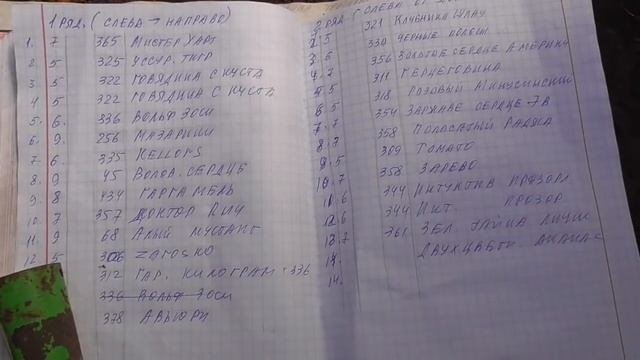 1 РЯД. (СЛЕВА → НАПРАВО)
1. 7 365 МИСТЕР УАРТ
2. 5 325 УССУР. ТИГР
3. 5 322 ГОВЯДИНА С КУСТА
4 5 322 ГОВЯДИНА С КУСТА
5. 6. 336 ВОЛЬФ ЗОСИ
6. 9. 256 МАЗАРИНИ
7. 6. 335 KELLOGS
8. 9 45 ВОЛОВ. СЕРДЦЕ
9. 8 434 ГАРГАМЕЛЬ
10. 7 357 ДОКТОР ЛИЧ
11. 9 68 АЛЫЙ МУСТАНГ
12. 5 306 ZAGOSKO
312 ГАР. КИЛОГРАМ 336
336 ВОЛЬФ ЗОСИ
378 АВЬЮРИ
2 РЯД (СЛЕВА
321 КЛУБНИКА
5 330 ЧЕРНЫЕ
3. 6 356 ЗОЛОТОЕ СЕРДЦЕ АМЕРИКИ
4. 7 311 ГЕРЦЕГОВИНА
5 318 РОЗОВЫЙ МИНУСИНСКИЙ
6. 5 354 СЕРДЦЕ
7. 7 358 ПОЛОСАТЫЙ РАДЖА
8. 7 309 ТОМАТО
9. 5 358 ЗАРЕВО
10. 7 344 ПРОЗОР
11. 6 344 ИНТ. ПРОЗОР
12. 6 361 ЗЕЛ. ГАЙКА
13. 7 ДВУХЦВЕТН. АНАНАС
14.